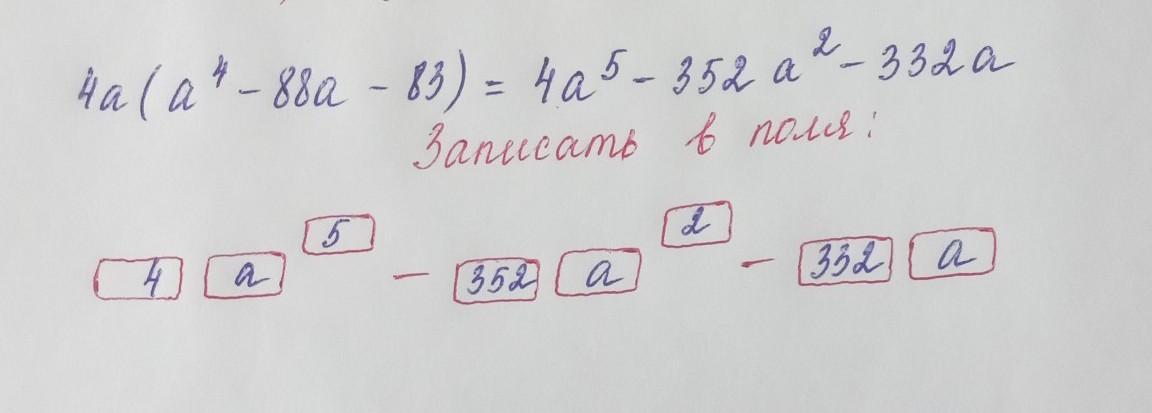 4a(a⁴ - 88a - 83) = 4a⁵ - 352a² - 332a
Записать в поля:
4 a⁵ - 352 a² - 332 a